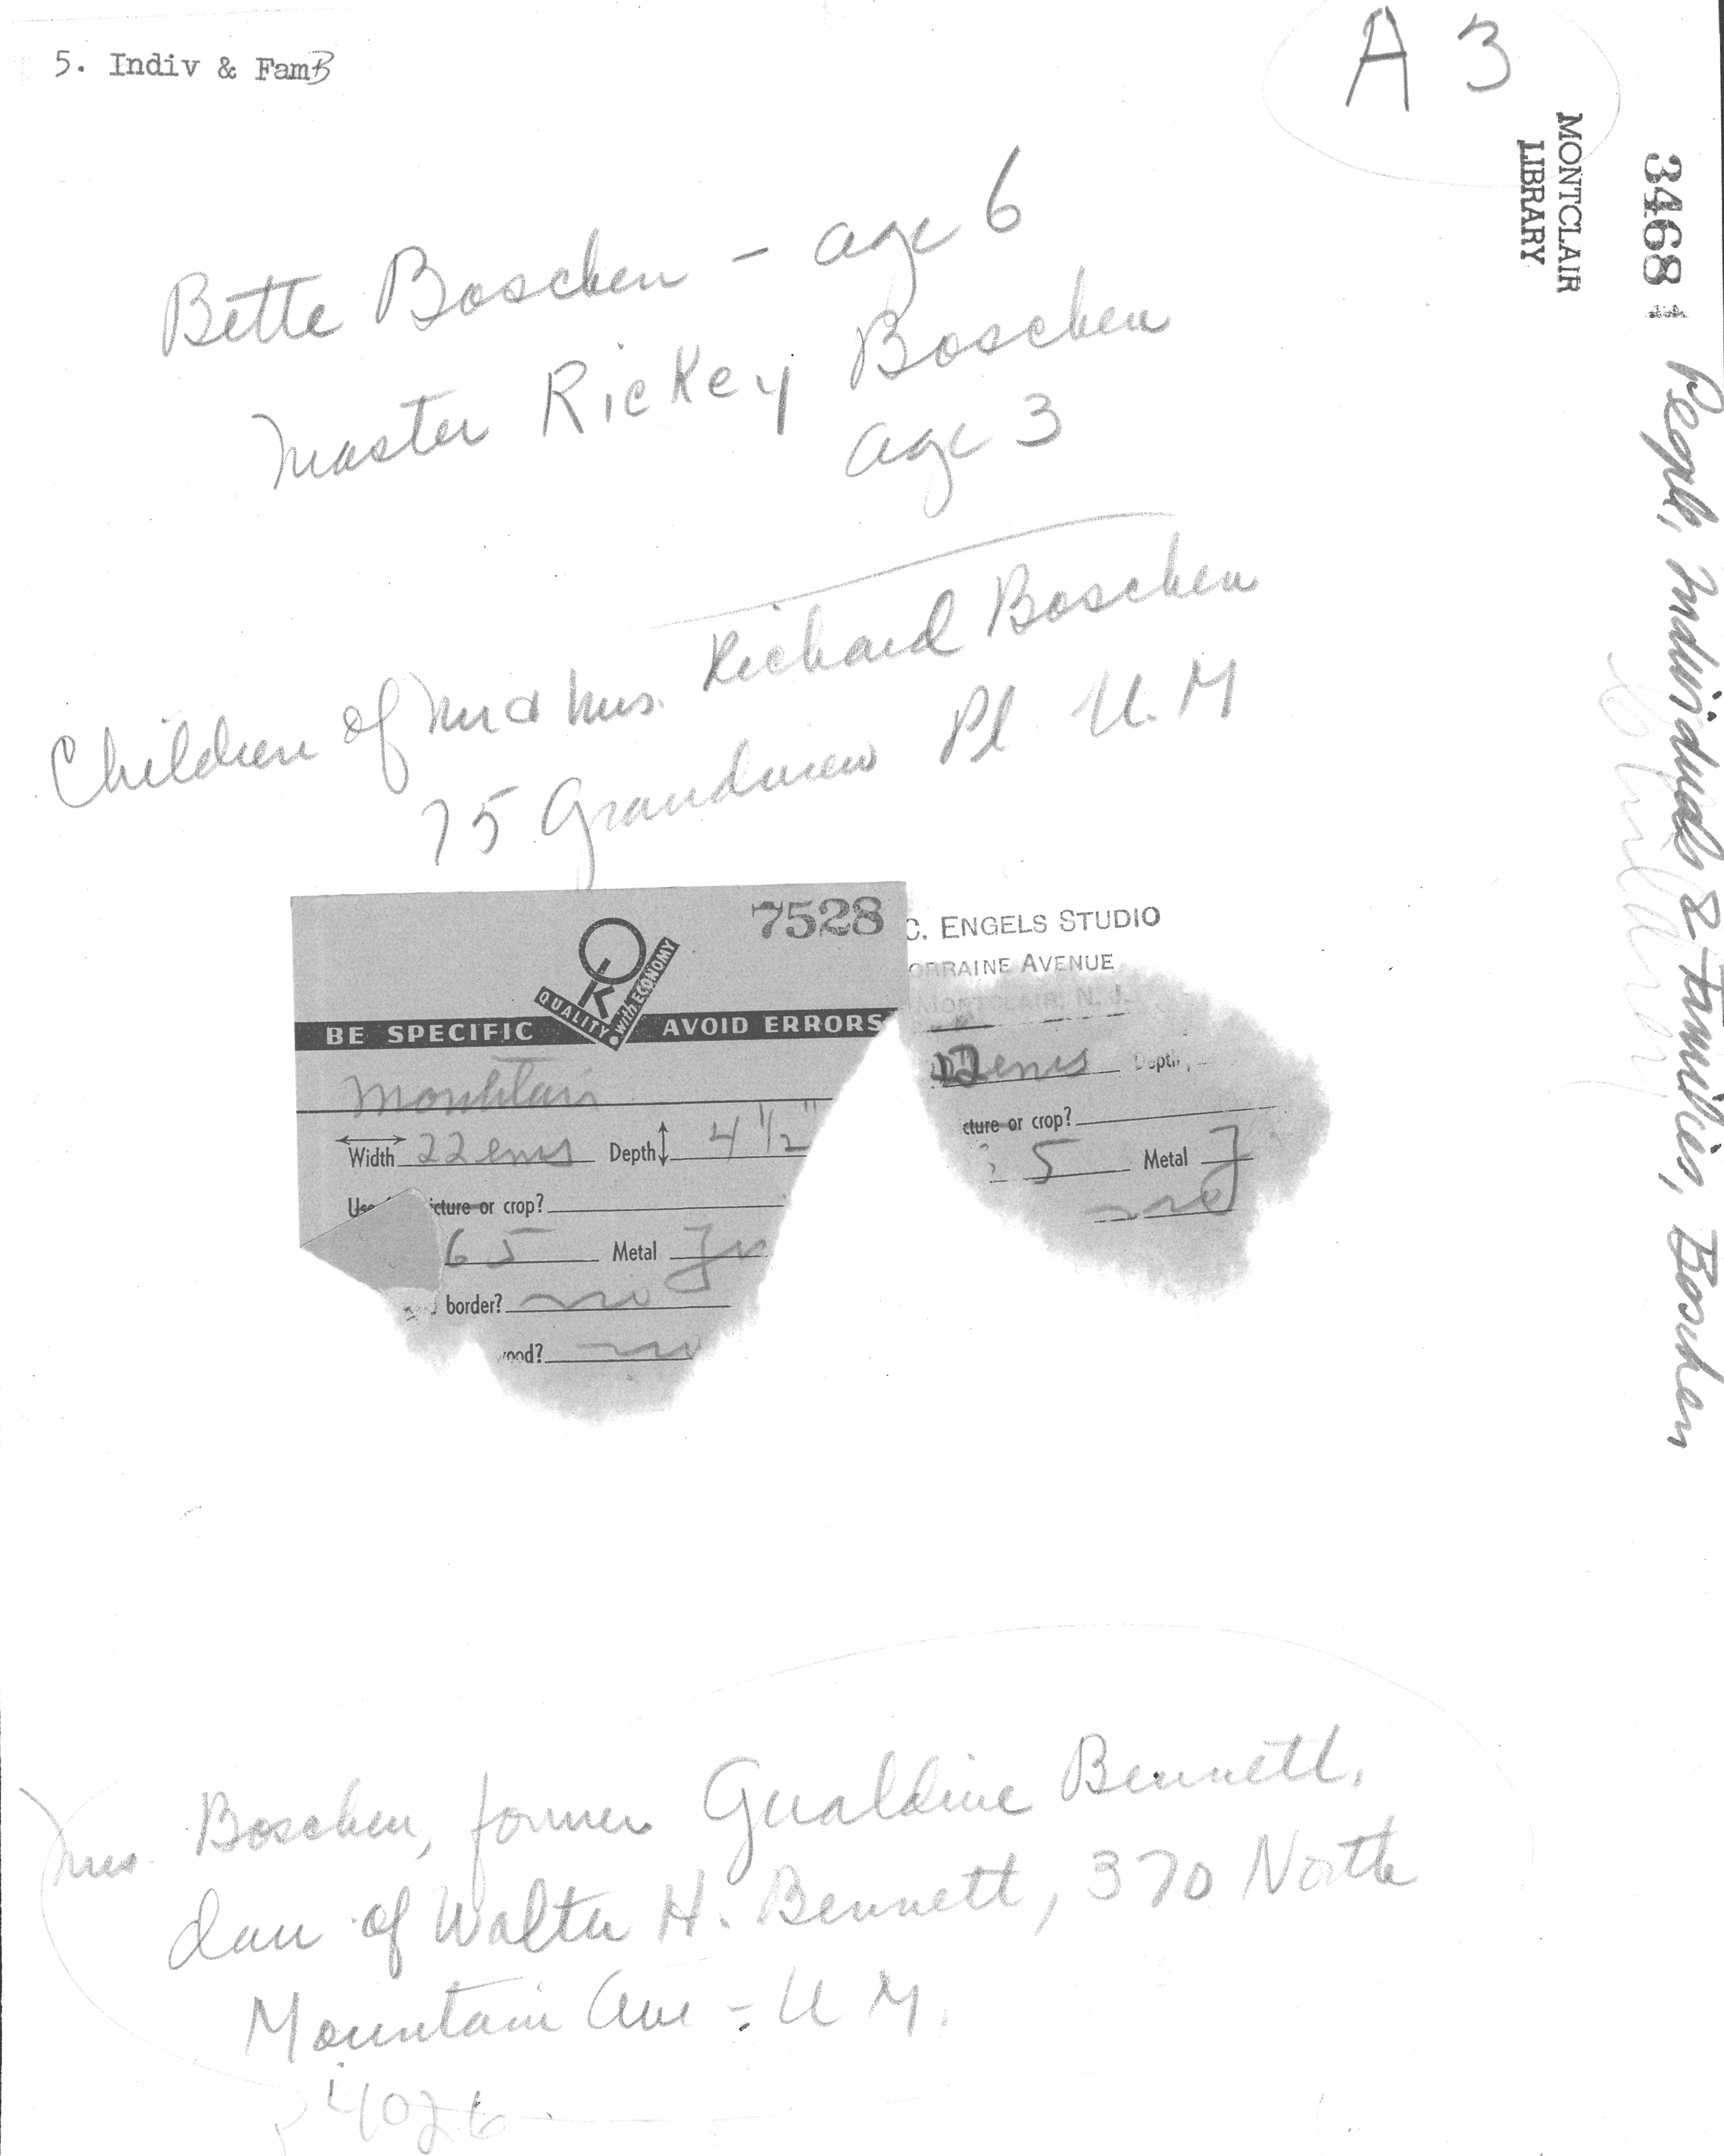 5. Indiv & Fam B
A 3
MONTCLAIR
LIBRARY
3468
People, Individuals & Families, Boschen
Bette Boschen - age 6
Master Rickey Boschen
age 3
Children of Mr & Mrs. Richard Boschen
75 Grandview Pl U. M
7528
OK
QUALITY with ECONOMY
BE SPECIFIC AVOID ERRORS
Montclair
Width 22 ems Depth 4 1/2"
cture or crop?
65 Metal
border? no
no
C. ENGELS STUDIO
ORRAINE AVENUE
MONTCLAIR, N. J.
22 ems Depth
cture or crop?
5 Metal
no
Mrs. Boschen, former Geraldine Bennett,
dau of Walter H. Bennett, 370 North
Mountain Ave - U M.
4026